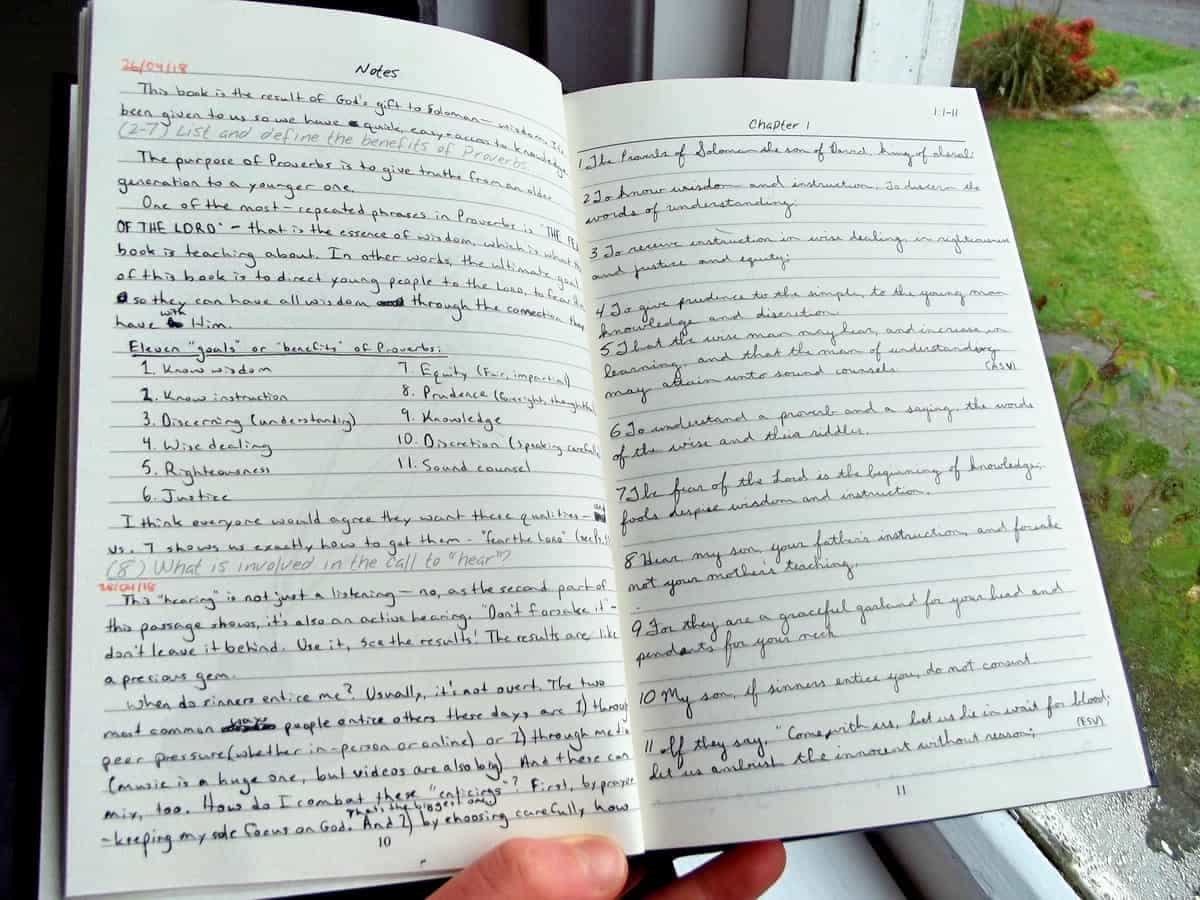 26/04/18
Notes
This book is the result of God's gift to Soloman - wisdom. It's
been given to us so we have quick, easy access to knowledge.
(2-7) List and define the benefits of Proverbs.
The purpose of Proverbs is to give truths from an older
generation to a younger one.
One of the most-repeated phrases in Proverbs is "THE FEAR
OF THE LORD" - that is the essence of wisdom, which is what this
book is teaching about. In other words, the ultimate goal
of this book is to direct young people to the Lord, to fear Him
so they can have all wisdom through the connection they
have with Him.
Eleven "goals" or "benefits" of Proverbs:
1. Know wisdom
2. Know instruction
3. Discerning (understanding)
4. Wise dealing
5. Righteousness
6. Justice
7 Equity (Fair, impartial)
8. Prudence (foresight, thoughtful
9. Knowledge
10. Discretion (speaking careful
11. Sound counsel
I think everyone would agree they want these qualities - and
vs. 7 shows us exactly how to get them - "fear the Lord"
(8) What is involved in the call to "hear"?
28/04/18
This "hearing" is not just a listening - no, as the second part of
this passage shows, it's also an active hearing. "Don't forsake it" -
don't leave it behind. Use it, see the results! The results are like
a precious gem.
When do sinners entice me? Usually, it's not overt. The two
most common ways people entice others these days are 1) through
peer pressure (whether in-person or online) or 2) through media
(music is a huge one, but videos are also big). And these can
mix, too. How do I combat these "enticings"? First, by prayer
- keeping my sole focus on God. That's the biggest one. And 2) by choosing carefully how
10
1:1-11
Chapter 1
1 The Proverbs of Soloman the son of David, king of Israel:
2 To know wisdom and instruction, To discern the
words of understanding;
3 To receive instruction in wise dealing, in righteousness
and justice and equity;
4 To give prudence to the simple, to the young man
knowledge and discretion.
5 That the wise man may hear, and increase in
learning, and that the man of understanding
may attain unto sound counsels (ASV)
6 To understand a proverb and a saying, the words
of the wise and their riddles.
7 The fear of the Lord is the beginning of knowledge;
fools despise wisdom and instruction.
8 Hear my son, your father's instruction, and forsake
not your mother's teaching,
9 For they are a graceful garland for your head and
pendants for your neck
10 My son, if sinners entice you, do not consent.
11 If they say, "Come with us, let us lie in wait for blood;
let us ambush the innocent without reason; (ESV)
11